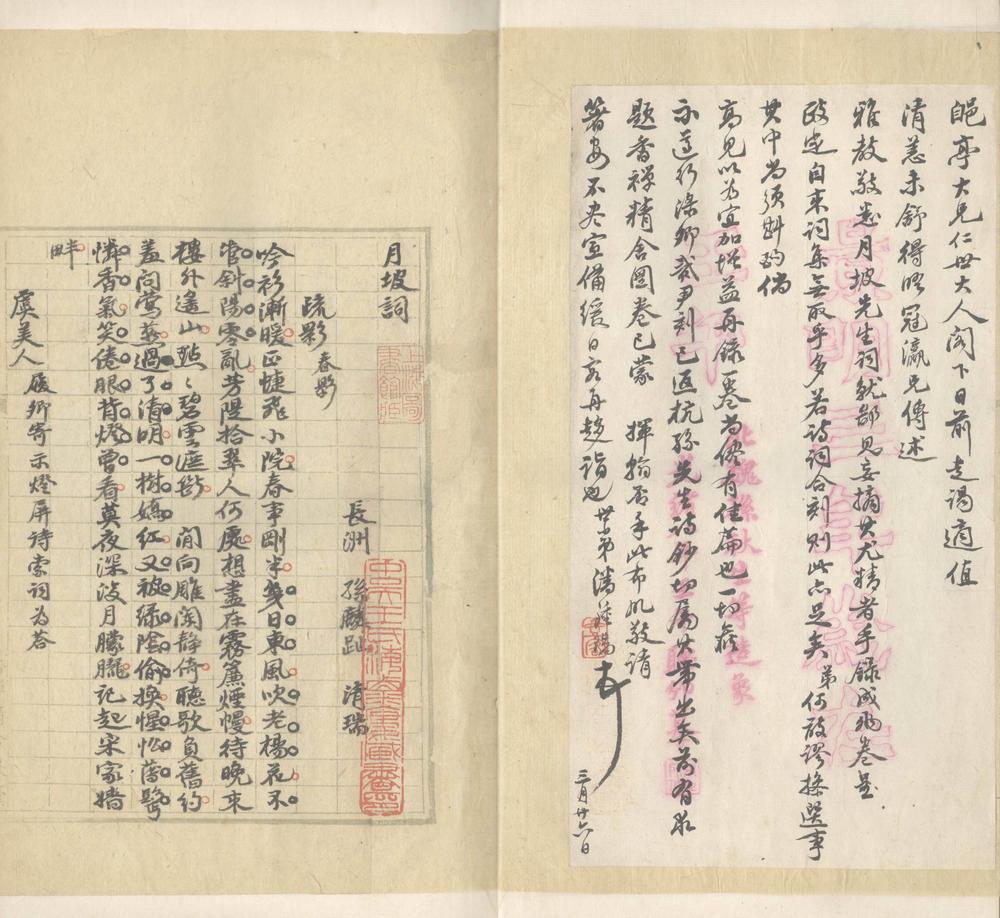 郒亭大兄仁世大人阁下日前走謁適值
清恙未舒得晤冠瀛兄傳述
雅教敬悉月坡先生詞就鄙見妄摘其尤精者手錄成兩卷並
改定自來詞集無取乎多若詩詞合刻則此亦足矣弟何敢謬操選事
其中尚須斟酌倘
高見以為宜加增益再錄一卷尚儘有佳篇也一切
示遵行滌卿貳尹刻已返杭孫先生詩鈔切屬其帶出矣前有求
題香禪精舍圖卷已蒙 揮翰否手此布肊敬請
箸安不盡宣備緩日容再趨詣也 世弟潘鍾瑞
三月廿六日
月坡詞
長洲 孫麟趾 清瑞
疏影 春影
吟衫漸暖正悽飛小院春事剛半幾日東風吹老楊花不
管斜陽零亂芳隄拾翠人何處想盡在霧簾煙幔待晚來
樓外遙山點點碧雲遮斷 閒向雕闌靜倚聽歌負舊約
羞問鶯燕過了清明一樹嫣紅又被綠陰偷換惺忪薄鬢
憐香氣笑倦眼背燈曾看莫夜深淡月朦朧記起宋家牆
畔
虞美人 履卿寄示燈屏詩索詞為荅